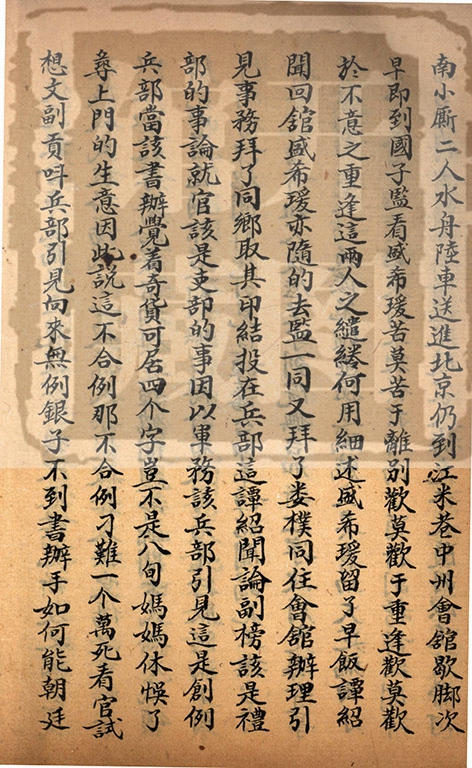 南小厮二人水舟陸車送進北京仍到江米巷中州會舘歇脚次
早即到國子監看盛希瑗苦莫苦于離别歡莫歡于重逢歡莫歡
於不意之重逢這兩人之繾綣何用細述盛希瑗留了早飯譚紹
聞回舘盛希瑗亦隨的去監一同又拜了娄樸同住會舘辦理引
見事務拜了同鄉取其印結投在兵部這譚紹聞論副榜該是禮
部的事論就官該是吏部的事因以軍務該兵部引見這是創例
兵部當該書辦覺着奇貨可居四个字豈不是八旬媽媽休悞了
上門的生意因此說這不合例那不合例刁難一个萬死看官試
想文副貢呌兵部引見向來無例銀子不到書辦手如何能朝廷